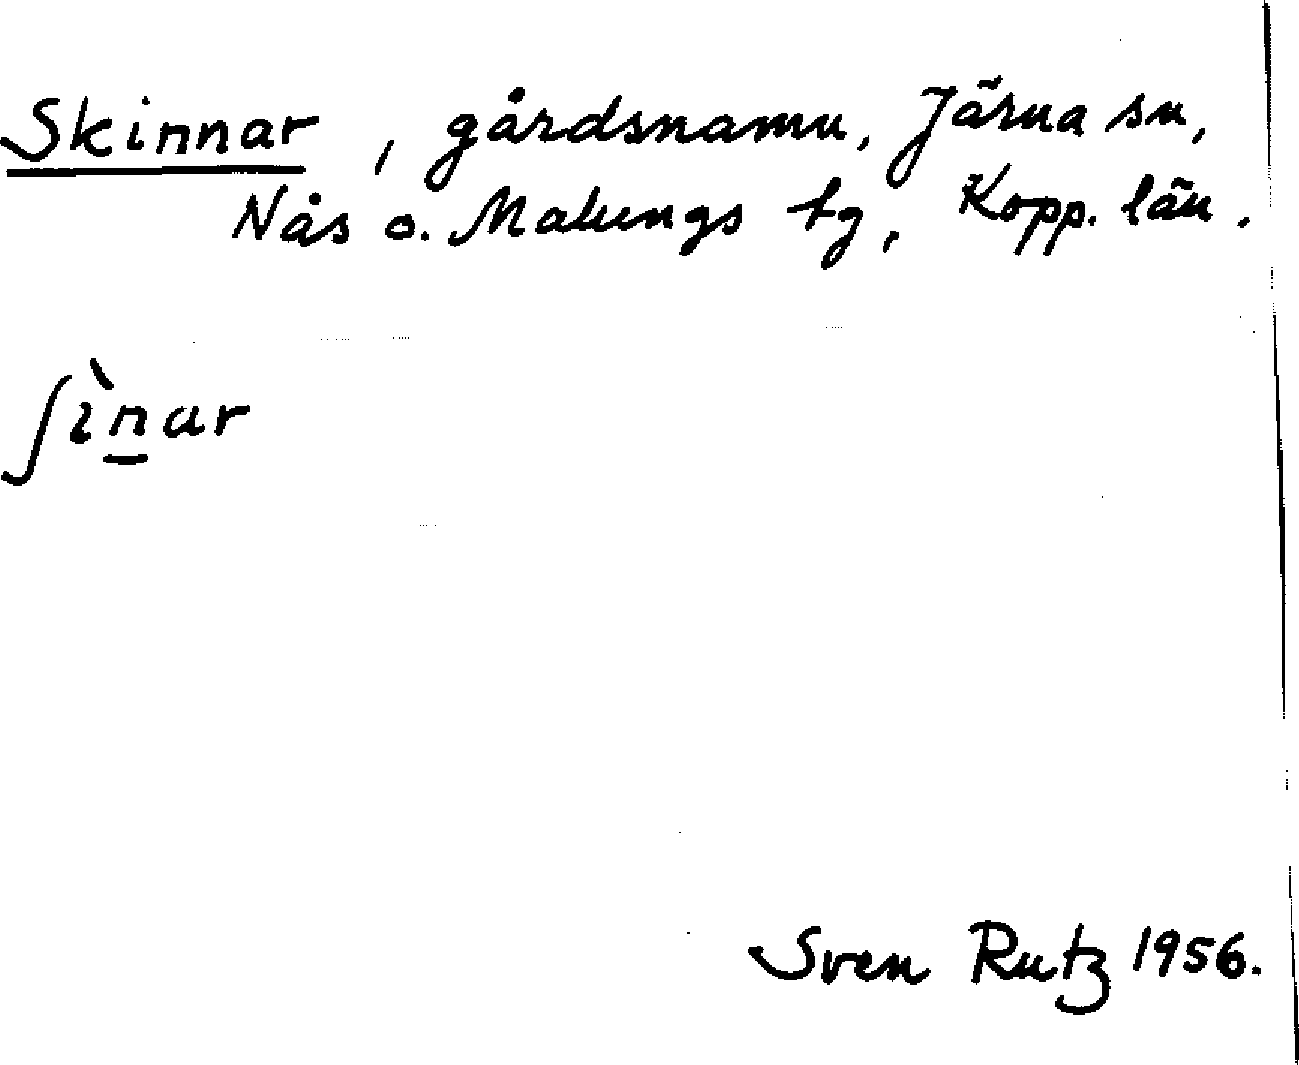 Skinnar, gårdsnamn, Järna sn,
Nås o. Malungs tg, Kopp. län.
ʃìn̲ar
Sven Rutz 1956.